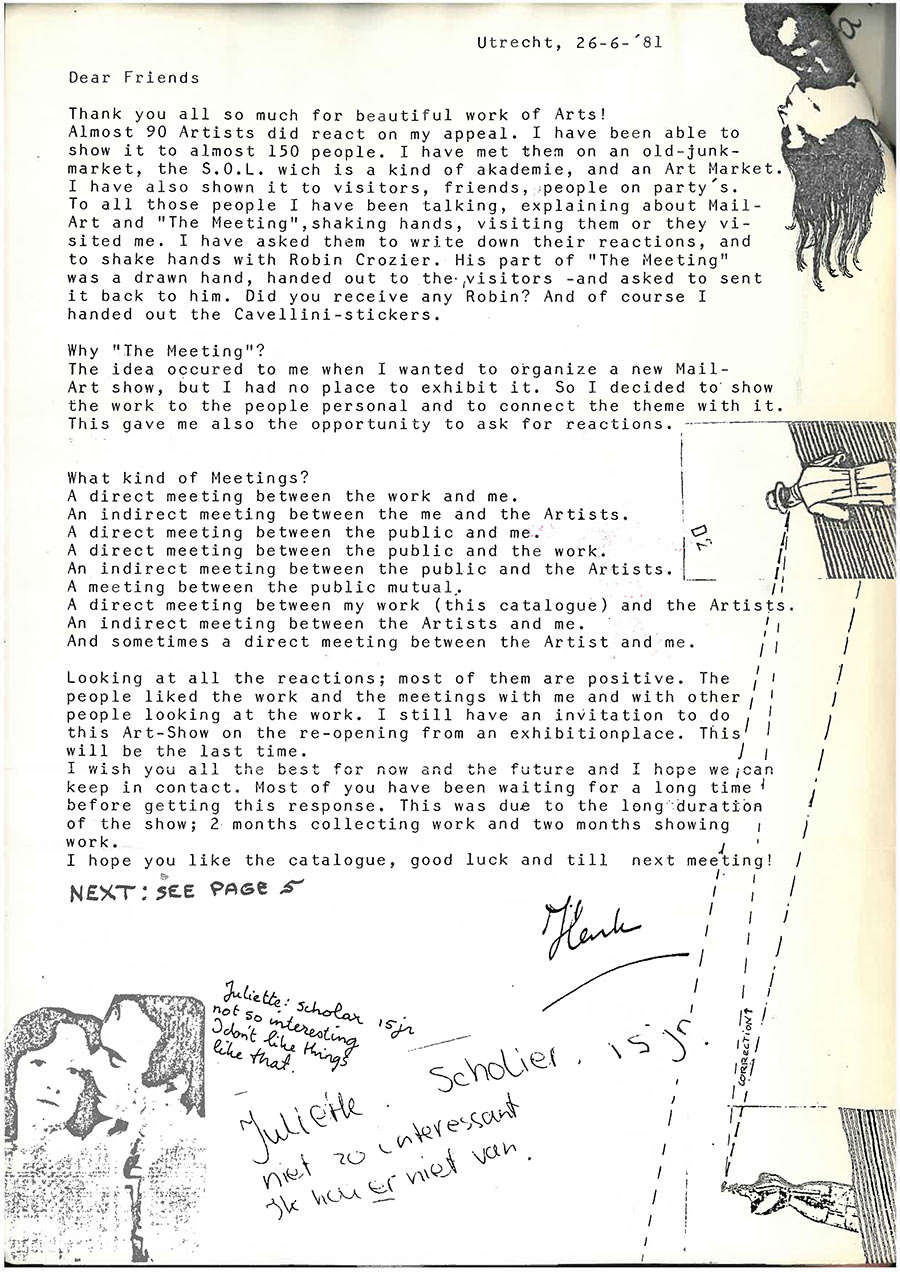 Utrecht, 26-6-´81
Dear Friends
Thank you all so much for beautiful work of Arts!
Almost 90 Artists did react on my appeal. I have been able to
show it to almost 150 people. I have met them on an old-junk-
market, the S.O.L. wich is a kind of akademie, and an Art Market.
I have also shown it to visitors, friends, people on party´s.
To all those people I have been talking, explaining about Mail-
Art and "The Meeting",shaking hands, visiting them or they vi-
sited me. I have asked them to write down their reactions, and
to shake hands with Robin Crozier. His part of "The Meeting"
was a drawn hand, handed out to the visitors -and asked to sent
it back to him. Did you receive any Robin? And of course I
handed out the Cavellini-stickers.
Why "The Meeting"?
The idea occured to me when I wanted to organize a new Mail-
Art show, but I had no place to exhibit it. So I decided to show
the work to the people personal and to connect the theme with it.
This gave me also the opportunity to ask for reactions.
What kind of Meetings?
A direct meeting between the work and me.
An indirect meeting between the me and the Artists.
A direct meeting between the public and me.
A direct meeting between the public and the work.
An indirect meeting between the public and the Artists.
A meeting between the public mutual.
A direct meeting between my work (this catalogue) and the Artists.
An indirect meeting between the Artists and me.
And sometimes a direct meeting between the Artist and me.
Looking at all the reactions; most of them are positive. The
people liked the work and the meetings with me and with other
people looking at the work. I still have an invitation to do
this Art-Show on the re-opening from an exhibitionplace. This
will be the last time.
I wish you all the best for now and the future and I hope we can
keep in contact. Most of you have been waiting for a long time
before getting this response. This was due to the long duration
of the show; 2 months collecting work and two months showing
work.
I hope you like the catalogue, good luck and till next meeting!
NEXT: SEE PAGE 5
Henk
Juliette: scholar 15jr
not so interesting
I don't like things
like that.
Juliette. Scholier. 15 jr.
niet zo interessant
Ik hou er niet van.
CORRECTION